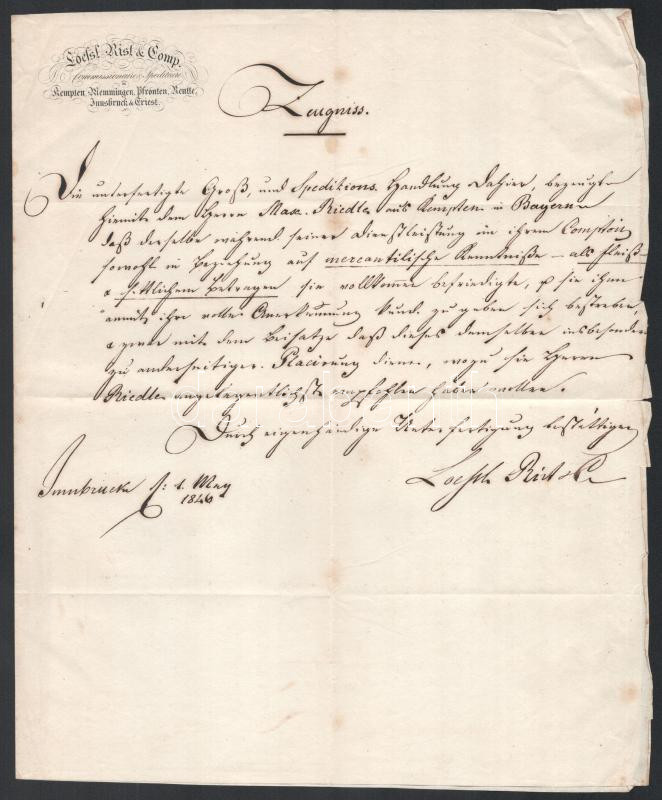 Loessl Rist & Comp.
Commissionaire & Spediteure
in
Kempten, Memmingen, Pfronten, Reutte,
Innsbruck & Triest.
Zeugniss.
Die unterfertigte Groß, und Speditions. Handlung dahier, bezeugt
hiemit dem Herrn Max. Riedle aus Kempten in Bayern
daß derselbe während seiner Dienstleistung in ihrem Comptoir
sowohl in Beziehung auf mercantilische Kenntniße – als Fleiß –
& sittlichem Betragen sie vollkommen befriedigte, sie ihm
ihre volle Anerkennung kund zu geben sich bestrebe,
& zwar mit dem Beisatze daß dieses demselben insbesondere
zu anderseitiger Placirung diene, wozu sie Herrn
Riedle angelegentlichst empfohlen haben wollen.
Durch eigenhändige Unterfertigung bestättigen
Innbruck 1. May
1846
Loessl Rist & C
darabanth